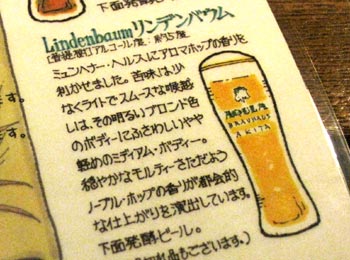 下面発酵
す。
Lindenbaumリンデンバウム
アルコール度:約5度
ミュンヘナー・ヘルスにアロマホップの香りを
利かせました。苦味は少
なくライトでスムースな喉越
しは、その明るいブロンド色
のボディーにふさわしいやや
軽めのミディアム・ボディー。
穏やかなモルティーさただよう
ノーブル・ホップの香りが都会的
な仕上がりを演出しています。
下面発酵ビール。
もございます。)
AQULA
BRAUHAUS
AKITA